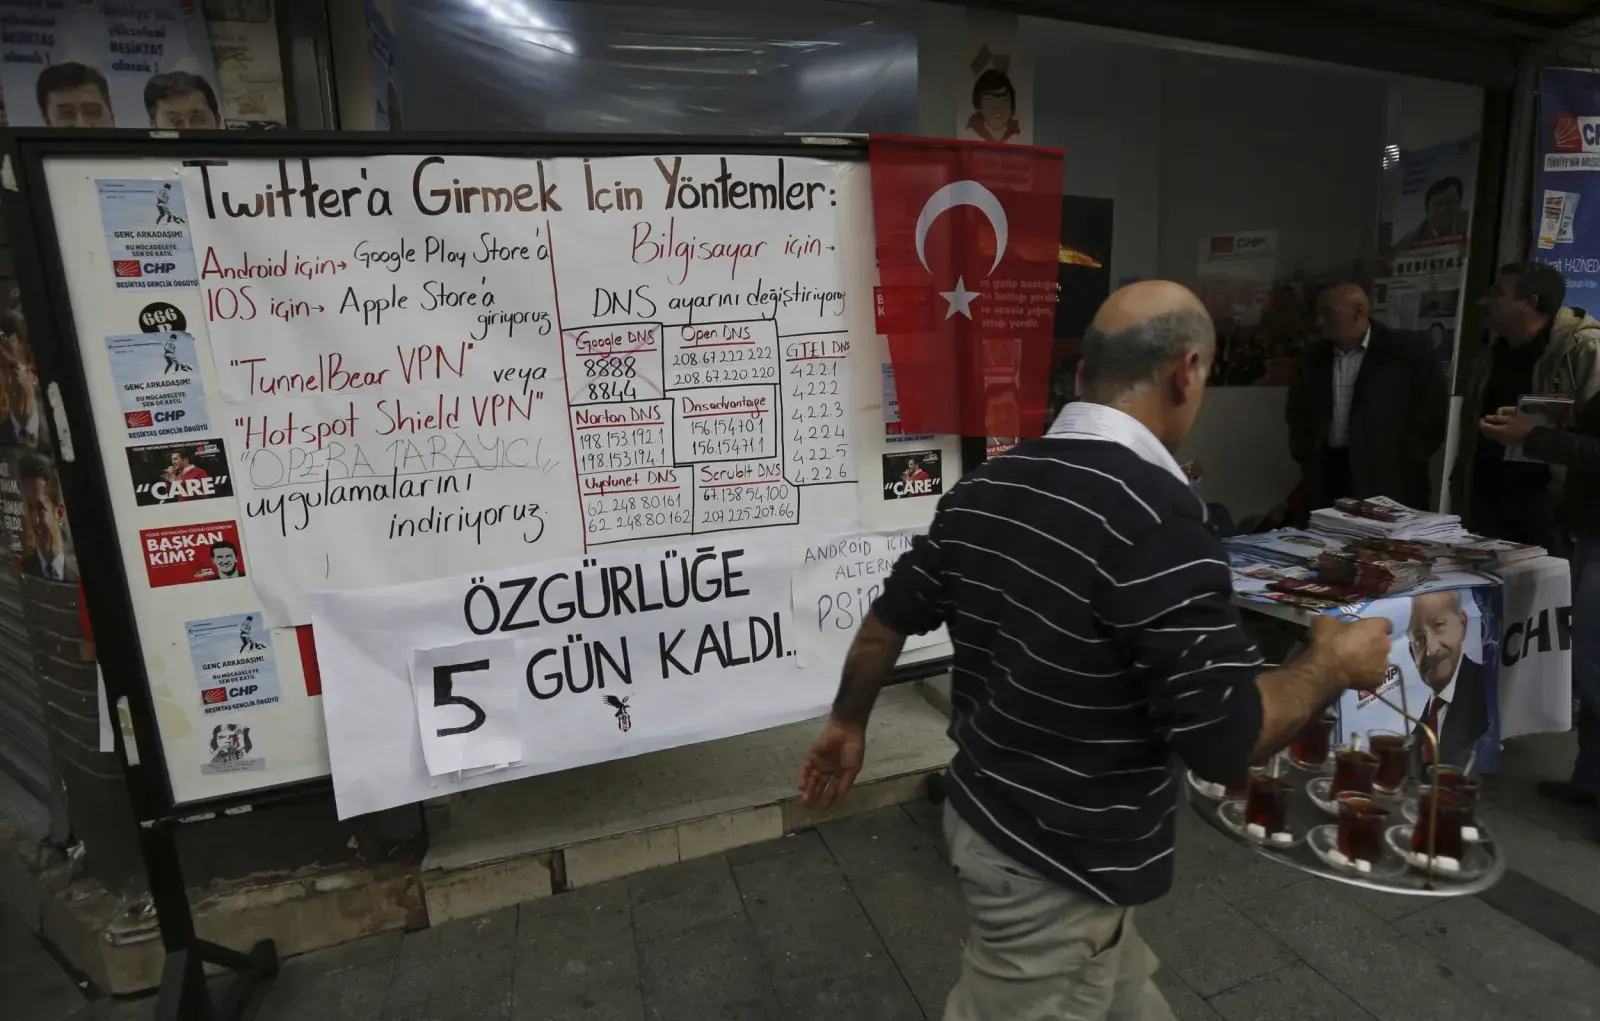 yükselsin
BEŞİKTAŞ
olacak!
BEŞİKTAŞ
olacak!
Twitter'a Girmek İçin Yöntemler:
Android için→ Google Play Store'a
IOS için→ Apple Store'a
giriyoruz
"TunnelBear VPN" veya
"Hotspot Shield VPN"
"OPERA TARAYICI"
uygulamalarını
indiriyoruz.
Bilgisayar için→
DNS ayarını değiştiriyoruz
Google DNS
8888
8844
Open DNS
208.67.222.222
208.67.220.220
GTEI DNS
4.2.2.1
4.2.2.2
4.2.2.3
4.2.2.4
4.2.2.5
4.2.2.6
Norton DNS
198.153.192.1
198.153.194.1
Dnsadvantage
156.154.70.1
156.154.71.1
Uydunet DNS
62 248 80 161
62 248 80 162
Scrubit DNS
67.138 54.100
207.225.209.66
ÖZGÜRLÜĞE
5 GÜN KALDI..
ANDROİD İÇİN
ALTERN
GENÇ ARKADAŞIM!
BU MÜCADELEYE
SEN DE KATIL
CHP
BEŞİKTAŞ GENÇLİK ÖRGÜTÜ
666
GENÇ ARKADAŞIM!
BU MÜCADELEYE
SEN DE KATIL
CHP
BEŞİKTAŞ GENÇLİK ÖRGÜTÜ
"ÇARE"
BAŞKAN
KİM?
GENÇ ARKADAŞIM!
BU MÜCADELEYE
SEN DE KATIL
CHP
BEŞİKTAŞ GENÇLİK ÖRGÜTÜ
"ÇARE"
CHP
BEŞİKTAŞ
HAZİNEDA
CHP